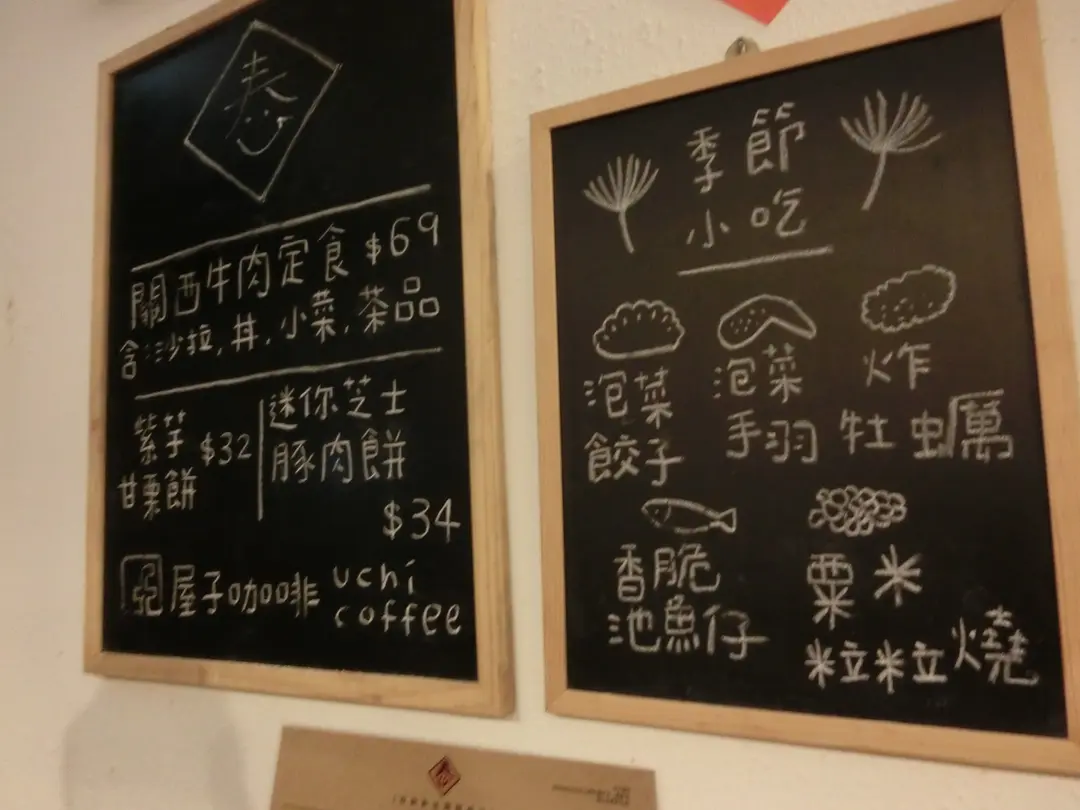 春
關西牛肉定食 $69
含:沙拉,丼,小菜,茶品
紫芋
甘栗餅
$32
迷你芝士
豚肉餅
$34
屋子咖啡 uchi
coffee
季節
小吃
泡菜
餃子
泡菜
手羽
炸
牡蠣
香脆
池魚仔
粟米
粒粒燒